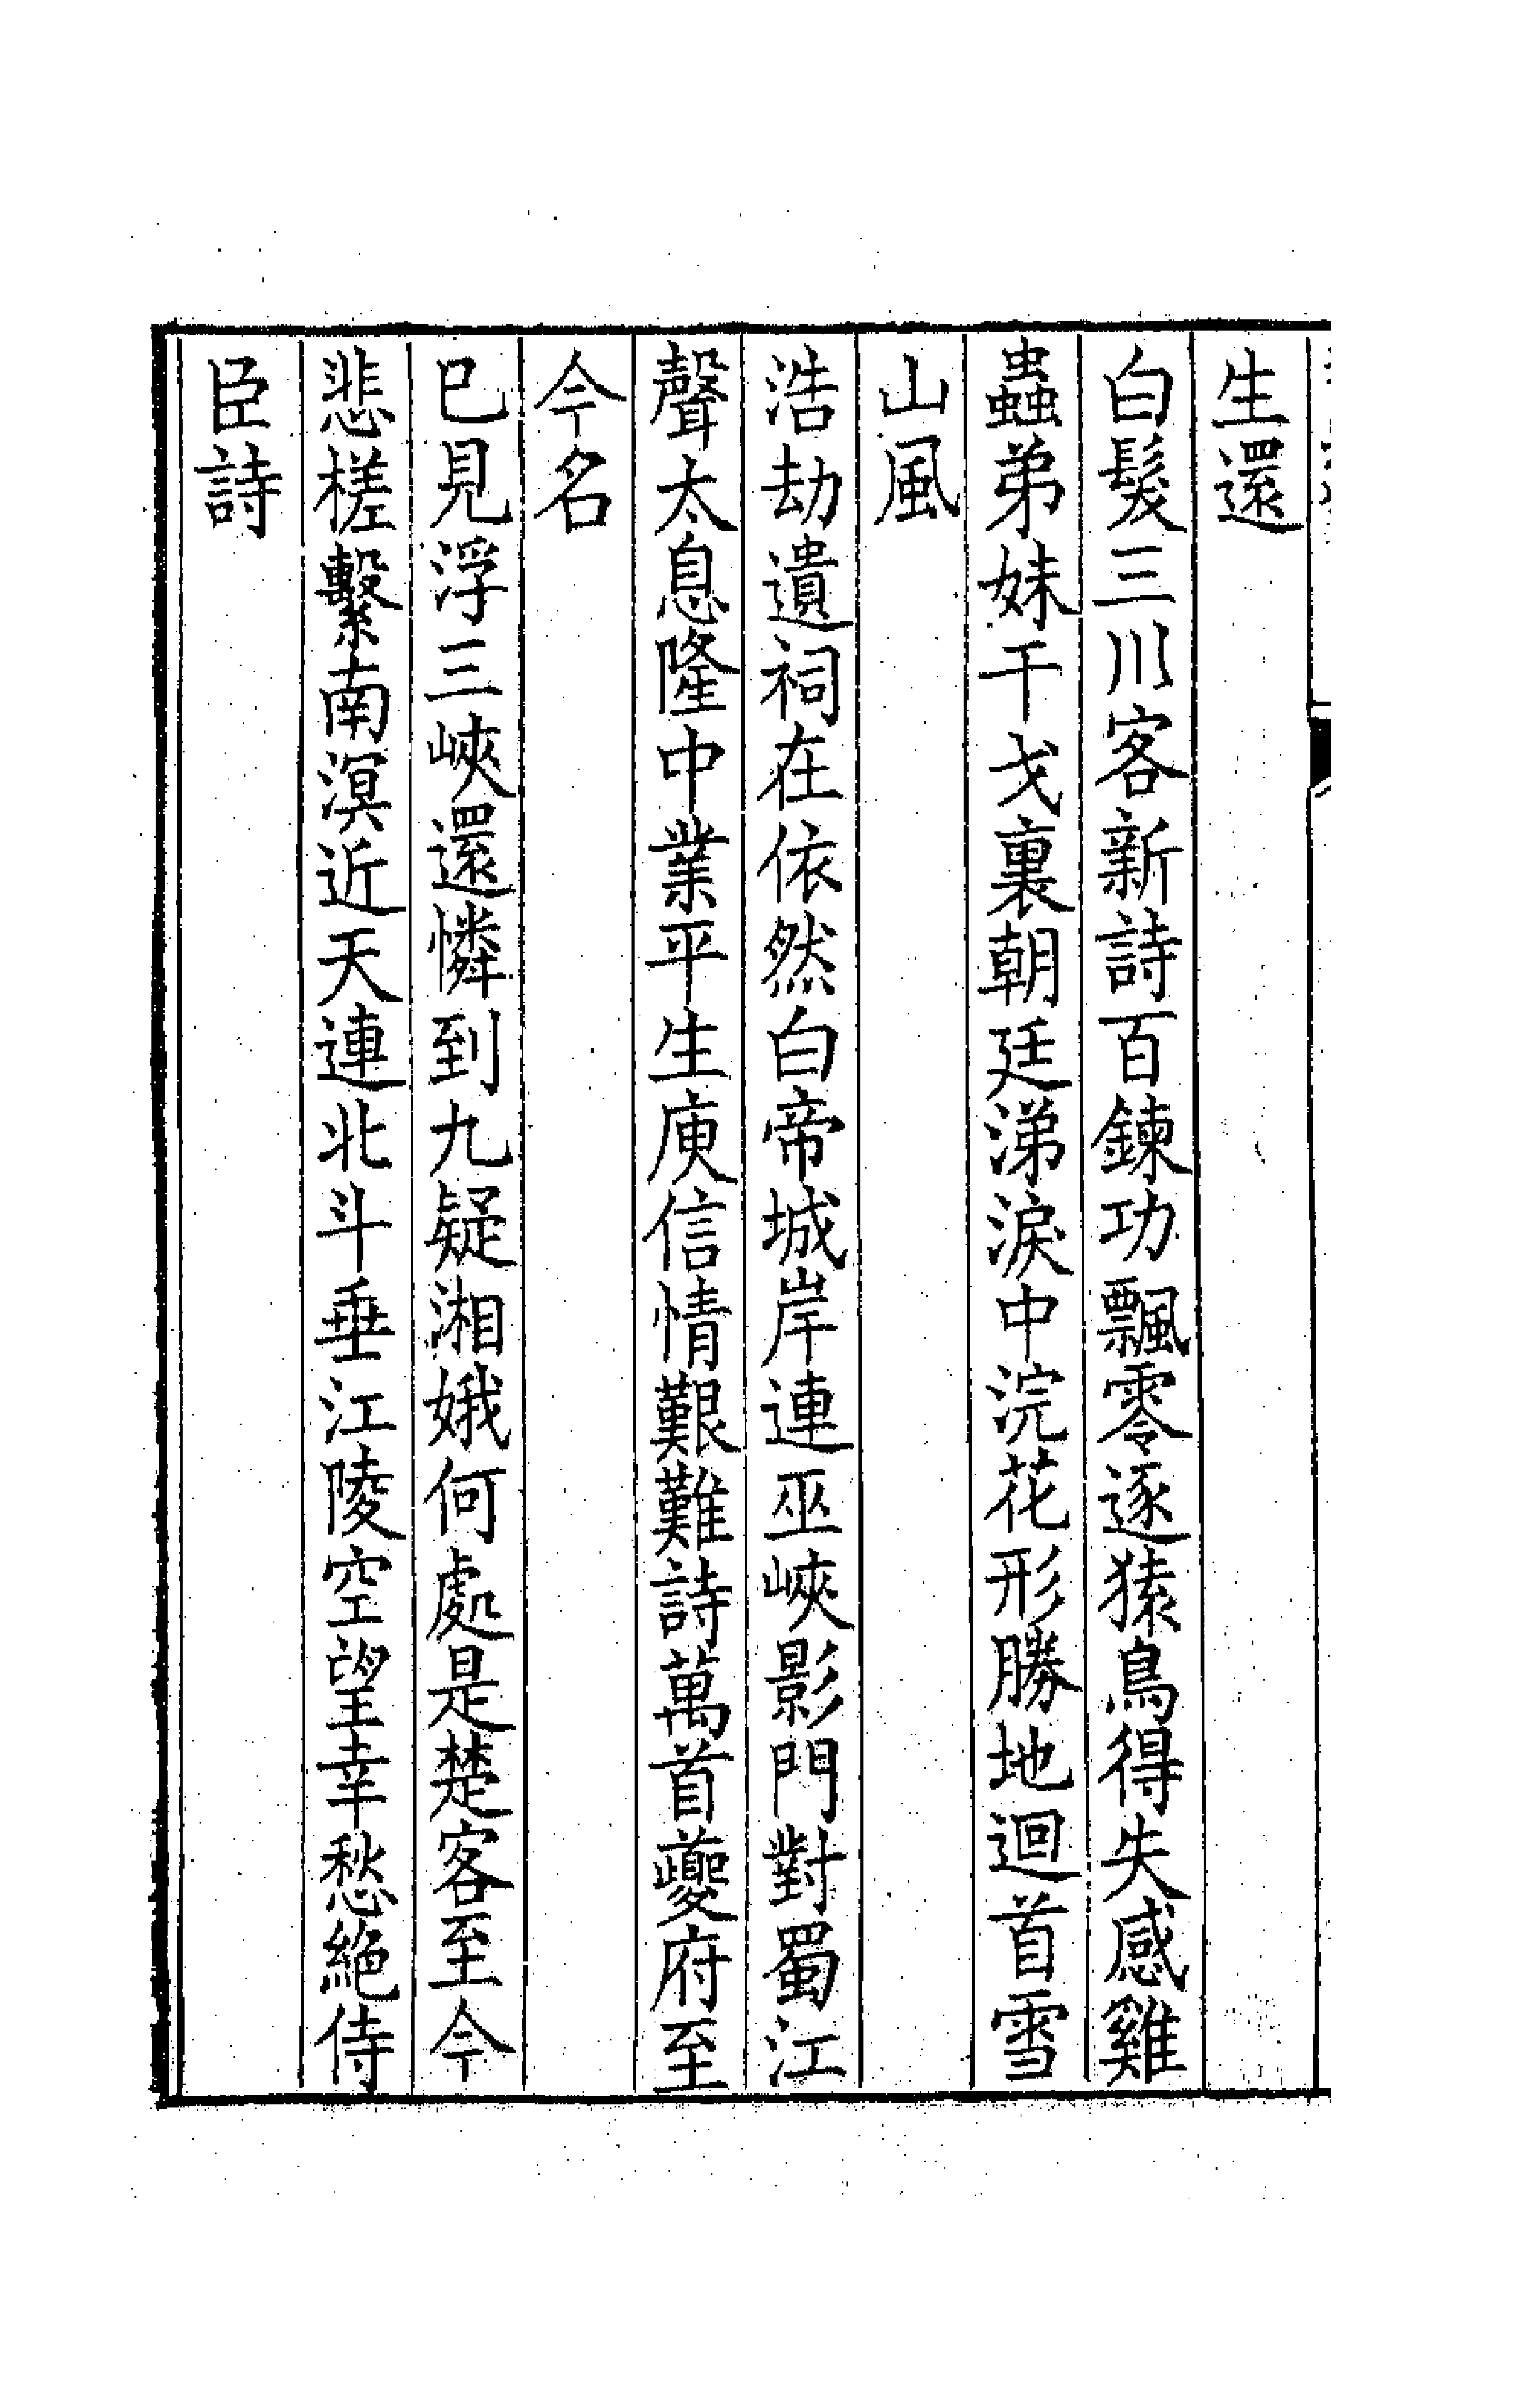 生還
白髮三川客新詩百鍊功飄零逐猿鳥得失感雞
蟲弟妹干戈裏朝廷涕淚中浣花形勝地迴首雪
山風
浩劫遺祠在依然白帝城岸連巫峽影門對蜀江
聲太息隆中業平生庾信情艱難詩萬首夔府至
今名
已見浮三峽還憐到九疑湘娥何處是楚客至今
悲槎繫南溟近天連北斗垂江陵空望幸愁絕侍
臣詩